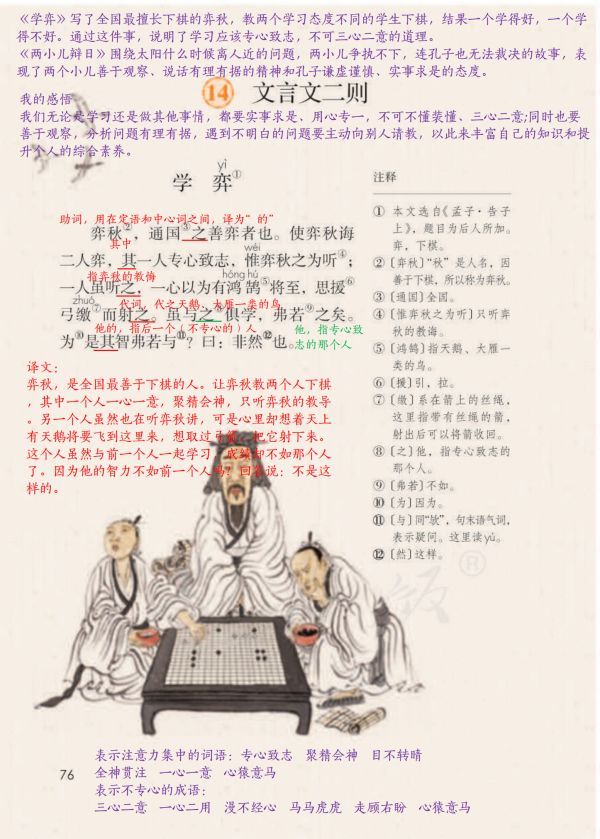 《学弈》写了全国最擅长下棋的弈秋，教两个学习态度不同的学生下棋，结果一个学得好，一个学
得不好。通过这件事，说明了学习应该专心致志，不可三心二意的道理。
《两小儿辩日》围绕太阳什么时候离人近的问题，两小儿争执不下，连孔子也无法裁决的故事，表
现了两个小儿善于观察、说话有理有据的精神和孔子谦虚谨慎、实事求是的态度。
14 文言文二则
我的感悟
我们无论是学习还是做其他事情，都要实事求是、用心专一，不可不懂装懂、三心二意;同时也要
善于观察，分析问题有理有据，遇到不明白的问题要主动向别人请教，以此来丰富自己的知识和提
升个人的综合素养。
yì
学 弈①
助词，用在定语和中心词之间，译为“的”
弈秋②，通国③之善弈者也。使弈秋诲
其中
wéi
二人弈，其一人专心致志，惟弈秋之为听④；
指弈秋的教诲
hóng hú
一人虽听之，一心以为有鸿鹄⑤将至，思援⑥
zhuó
代词，代之天鹅、大雁一类的鸟
弓缴⑦而射之。虽与之⑧俱学，弗若⑨之矣。
他的，指后一个（不专心的）人
他，指专心致
志的那个人
为⑩是其智弗若与⑪？曰：非然⑫也。
译文：
弈秋，是全国最善于下棋的人。让弈秋教两个人下棋
，其中一个人一心一意，聚精会神，只听弈秋的教导
。另一个人虽然也在听弈秋讲，可是心里却想着天上
有天鹅将要飞到这里来，想取过弓箭，把它射下来。
这个人虽然与前一个人一起学习，成绩却不如那个人
了。因为他的智力不如前一个人吗？回答说：不是这
样的。
注释
① 本文选自《孟子·告子
上》，题目为后人所加。
弈，下棋。
② 〔弈秋〕“秋”是人名，因
善于下棋，所以称为弈秋。
③ 〔通国〕全国。
④ 〔惟弈秋之为听〕只听弈
秋的教诲。
⑤ 〔鸿鹄〕指天鹅、大雁一
类的鸟。
⑥ 〔援〕引，拉。
⑦ 〔缴〕系在箭上的丝绳，
这里指带有丝绳的箭，
射出后可以将箭收回。
⑧ 〔之〕他，指专心致志的
那个人。
⑨ 〔弗若〕不如。
⑩ 〔为〕因为。
⑪ 〔与〕同“欤”，句末语气词，
表示疑问。这里读yú。
⑫ 〔然〕这样。
饭®
表示注意力集中的词语：专心致志 聚精会神 目不转睛
76
全神贯注 一心一意 心猿意马
表示不专心的成语：
三心二意 一心二用 漫不经心 马马虎虎 走顾右盼 心猿意马